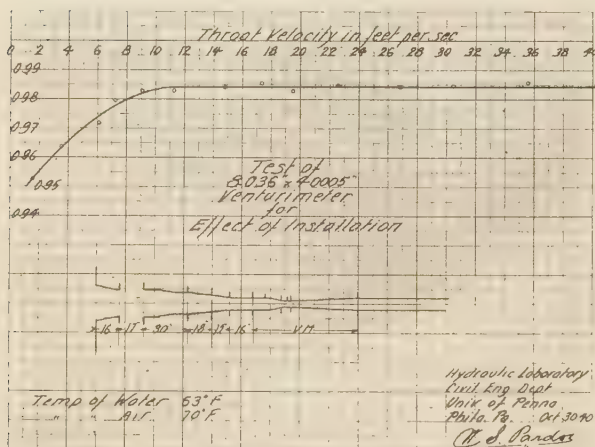 Throat Velocity in feet per sec
0 2 4 6 8 10 12 14 16 18 20 22 24 26 28 30 32 34 36 38 40
0.99
0.98
0.97
0.96
0.95
0.94
Test of
8.036" x 4.0005"
Venturimeter
for
Effect of Installation
16 17 30" 18 15 16 V.M.
Temp of Water 63°F
" " Air 70°F
Hydraulic Laboratory
Civil Eng Dept
Univ of Penna
Phila. Pa. Oct 30 40
W. S. Pardoe